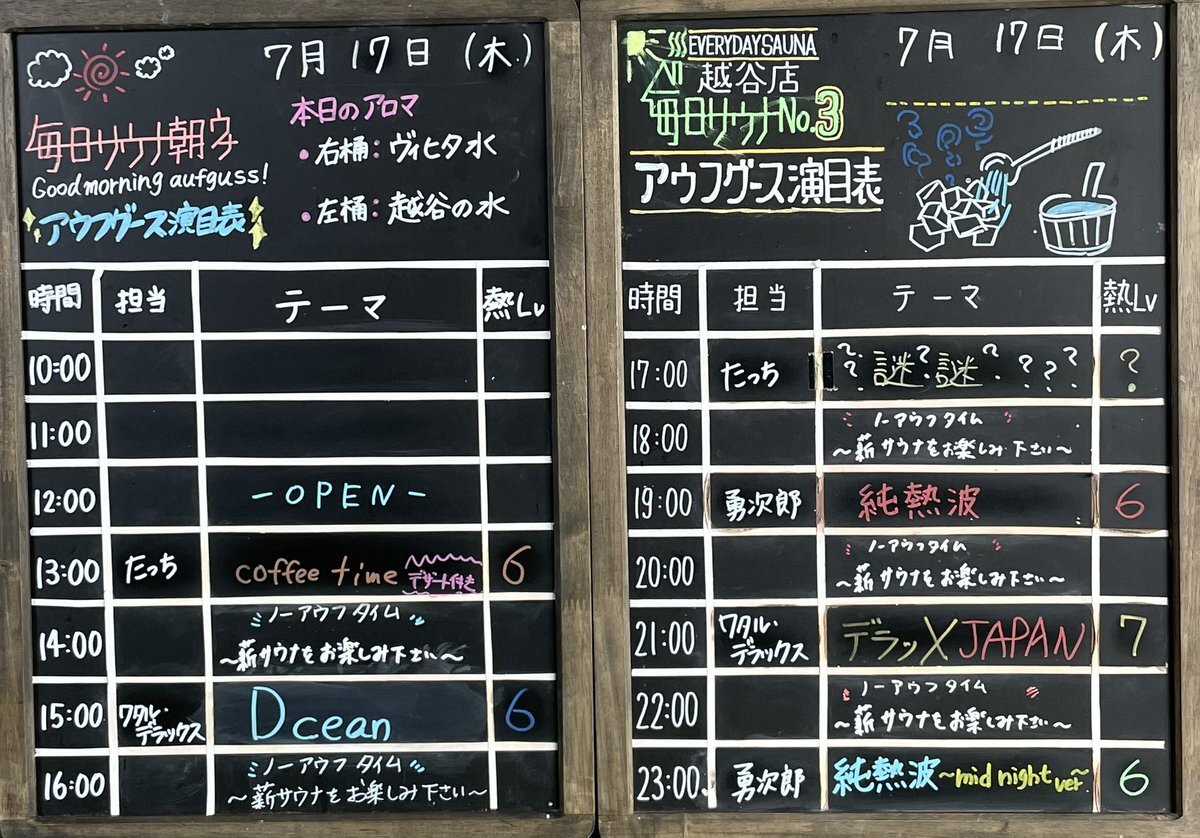 7月 17日 (木)
毎日サウナ朝ウ
Good morning aufguss!
アウフグース演目表
本日のアロマ
・右桶：ヴィヒタ水
・左桶：越谷の水
時間 担当 テーマ 熱Lv
10:00
11:00
12:00 -OPEN-
13:00 たっち coffee time デザート付き 6
14:00 ノーアウフタイム
～薪サウナをお楽しみ下さい～
15:00 ワタル・デラックス Dcean 6
16:00 ノーアウフタイム
～薪サウナをお楽しみ下さい～
EVERYDAY SAUNA
越谷店
毎日サウナNo.3
アウフグース演目表
7月 17日 (木)
時間 担当 テーマ 熱Lv
17:00 たっち ??謎?謎????? ?
18:00 ノーアウフタイム
～薪サウナをお楽しみ下さい～
19:00 勇次郎 純熱波 6
20:00 ノーアウフタイム
～薪サウナをお楽しみ下さい～
21:00 ワタル・デラックス デラッX JAPAN 7
22:00 ノーアウフタイム
～薪サウナをお楽しみ下さい～
23:00 勇次郎 純熱波～mid night ver～ 6